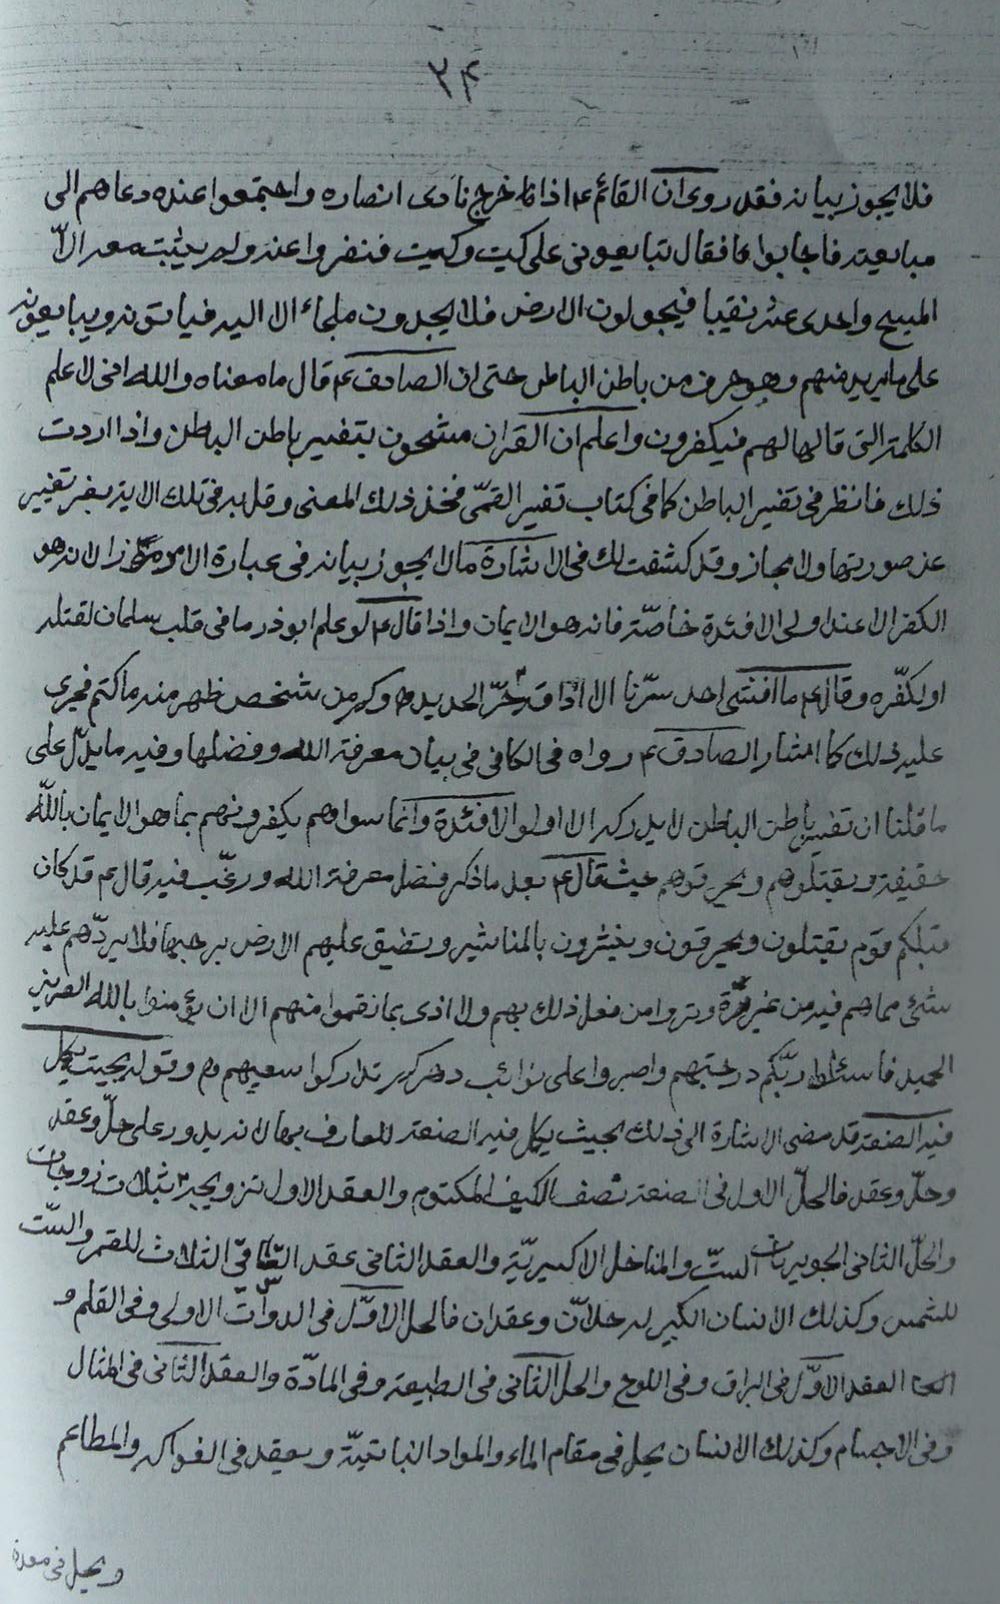 ۳۴
فلا يجوز بيانه فقد روى ان القائم ع اذا خرج نادى انصاره واجتمعوا عنده دعاهم الى
مبايعته فاجابوا فقال تبايعونى على كيت وكيت فنفروا عنه ولم يثبت معه الّا
المسيح واحدى عشر نقيبا فيجولون الارض فلا يجدون ملجاء الا اليه فياتونه ويبايعونه
على ما يريد منهم وهو حرف من باطن الباطن حتى ان الصادق ع قال ما معناه والله انى لاعلم
الكلمة التى قالها لهم فيكفرون واعلم ان القران مشحون بتفسير باطن الباطن واذا اردت
ذلك فانظر فى تفسير الباطن كما فى كتاب تفسير القمّى فخذ ذلك المعنى وقل به فى تلك الاية بغير تغيير
عن صورتها ولا مجاز وقد كشفت لك فى الاشارة ما لا يجوز بيانه فى عبارة الا لانه هو
الكفر الا عند اولى الافئدة خاصّة فانه هو الايمان ولذا قال ع لو علم ابوذر ما فى قلب سلمان لقتله
او لكفّره وقال ع ما افشى احد سرّنا الا اذاقه حرّ الحديد وكم من شخص ظهر منه ما كتم فجرى
عليه ذلك كما اشار الصادق ع رواه فى الكافى فى بيان معرفة الله وفضلها وفيه ما يدلّ على
ما قلنا ان تفسير باطن الباطن لا يدركه الا اولوا الافئدة وانما سواهم يكفرونهم بما هو الايمان بالله
حقيقة ويقتلوهم ويحرقوهم حيث قال ع بعد ما ذكر فضل معرفة الله ورغّب فيه قال ع قد كان
قبلكم قوم يقتلون ويحرقون وينشرون بالمناشير وتضيق عليهم الارض برحبها فلا يردّهم عليه
شئ مما هم فيه من غير ترة وتروا من فعل ذلك بهم ولا اذى بما نقموا منهم الا ان يؤمنوا بالله العزيز
الحميد فاسئلوا ربّكم درجتهم واصبروا على نوائب دهركم تدركوا سعيهم وقوله بحيث يكمل
فيه الصنعة قد مضى الاشارة الى ذلك بحيث يكمل فيه الصنعة للعارف بها لانه يدور على حلّ وعقد
وحلّ وعقد فالحلّ الاول فى الصنعة نصف الكيف المكتوم والعقد الاول تزويجه بثلاث زوجات
والحلّ الثانى الستّ والمناخل الاكسيريّة والعقد الثانى عقد فى الثلاث للقمر والستّ
للشمس وكذلك الانسان الكبير له حلان وعقدان فالحل الاوّل فى الدواة الاولى وفى القلم و
العقد الاوّل فى البراق وفى اللوح والحل الثانى فى الطبيعة وفى المادّة والعقد الثانى فى المثال
وفى الاجسام وكذلك الانسان يحل فى مقام الماء والمواد النباتيّة ويعقد فى الفواكه والمطاعم
ويحل فى معدة